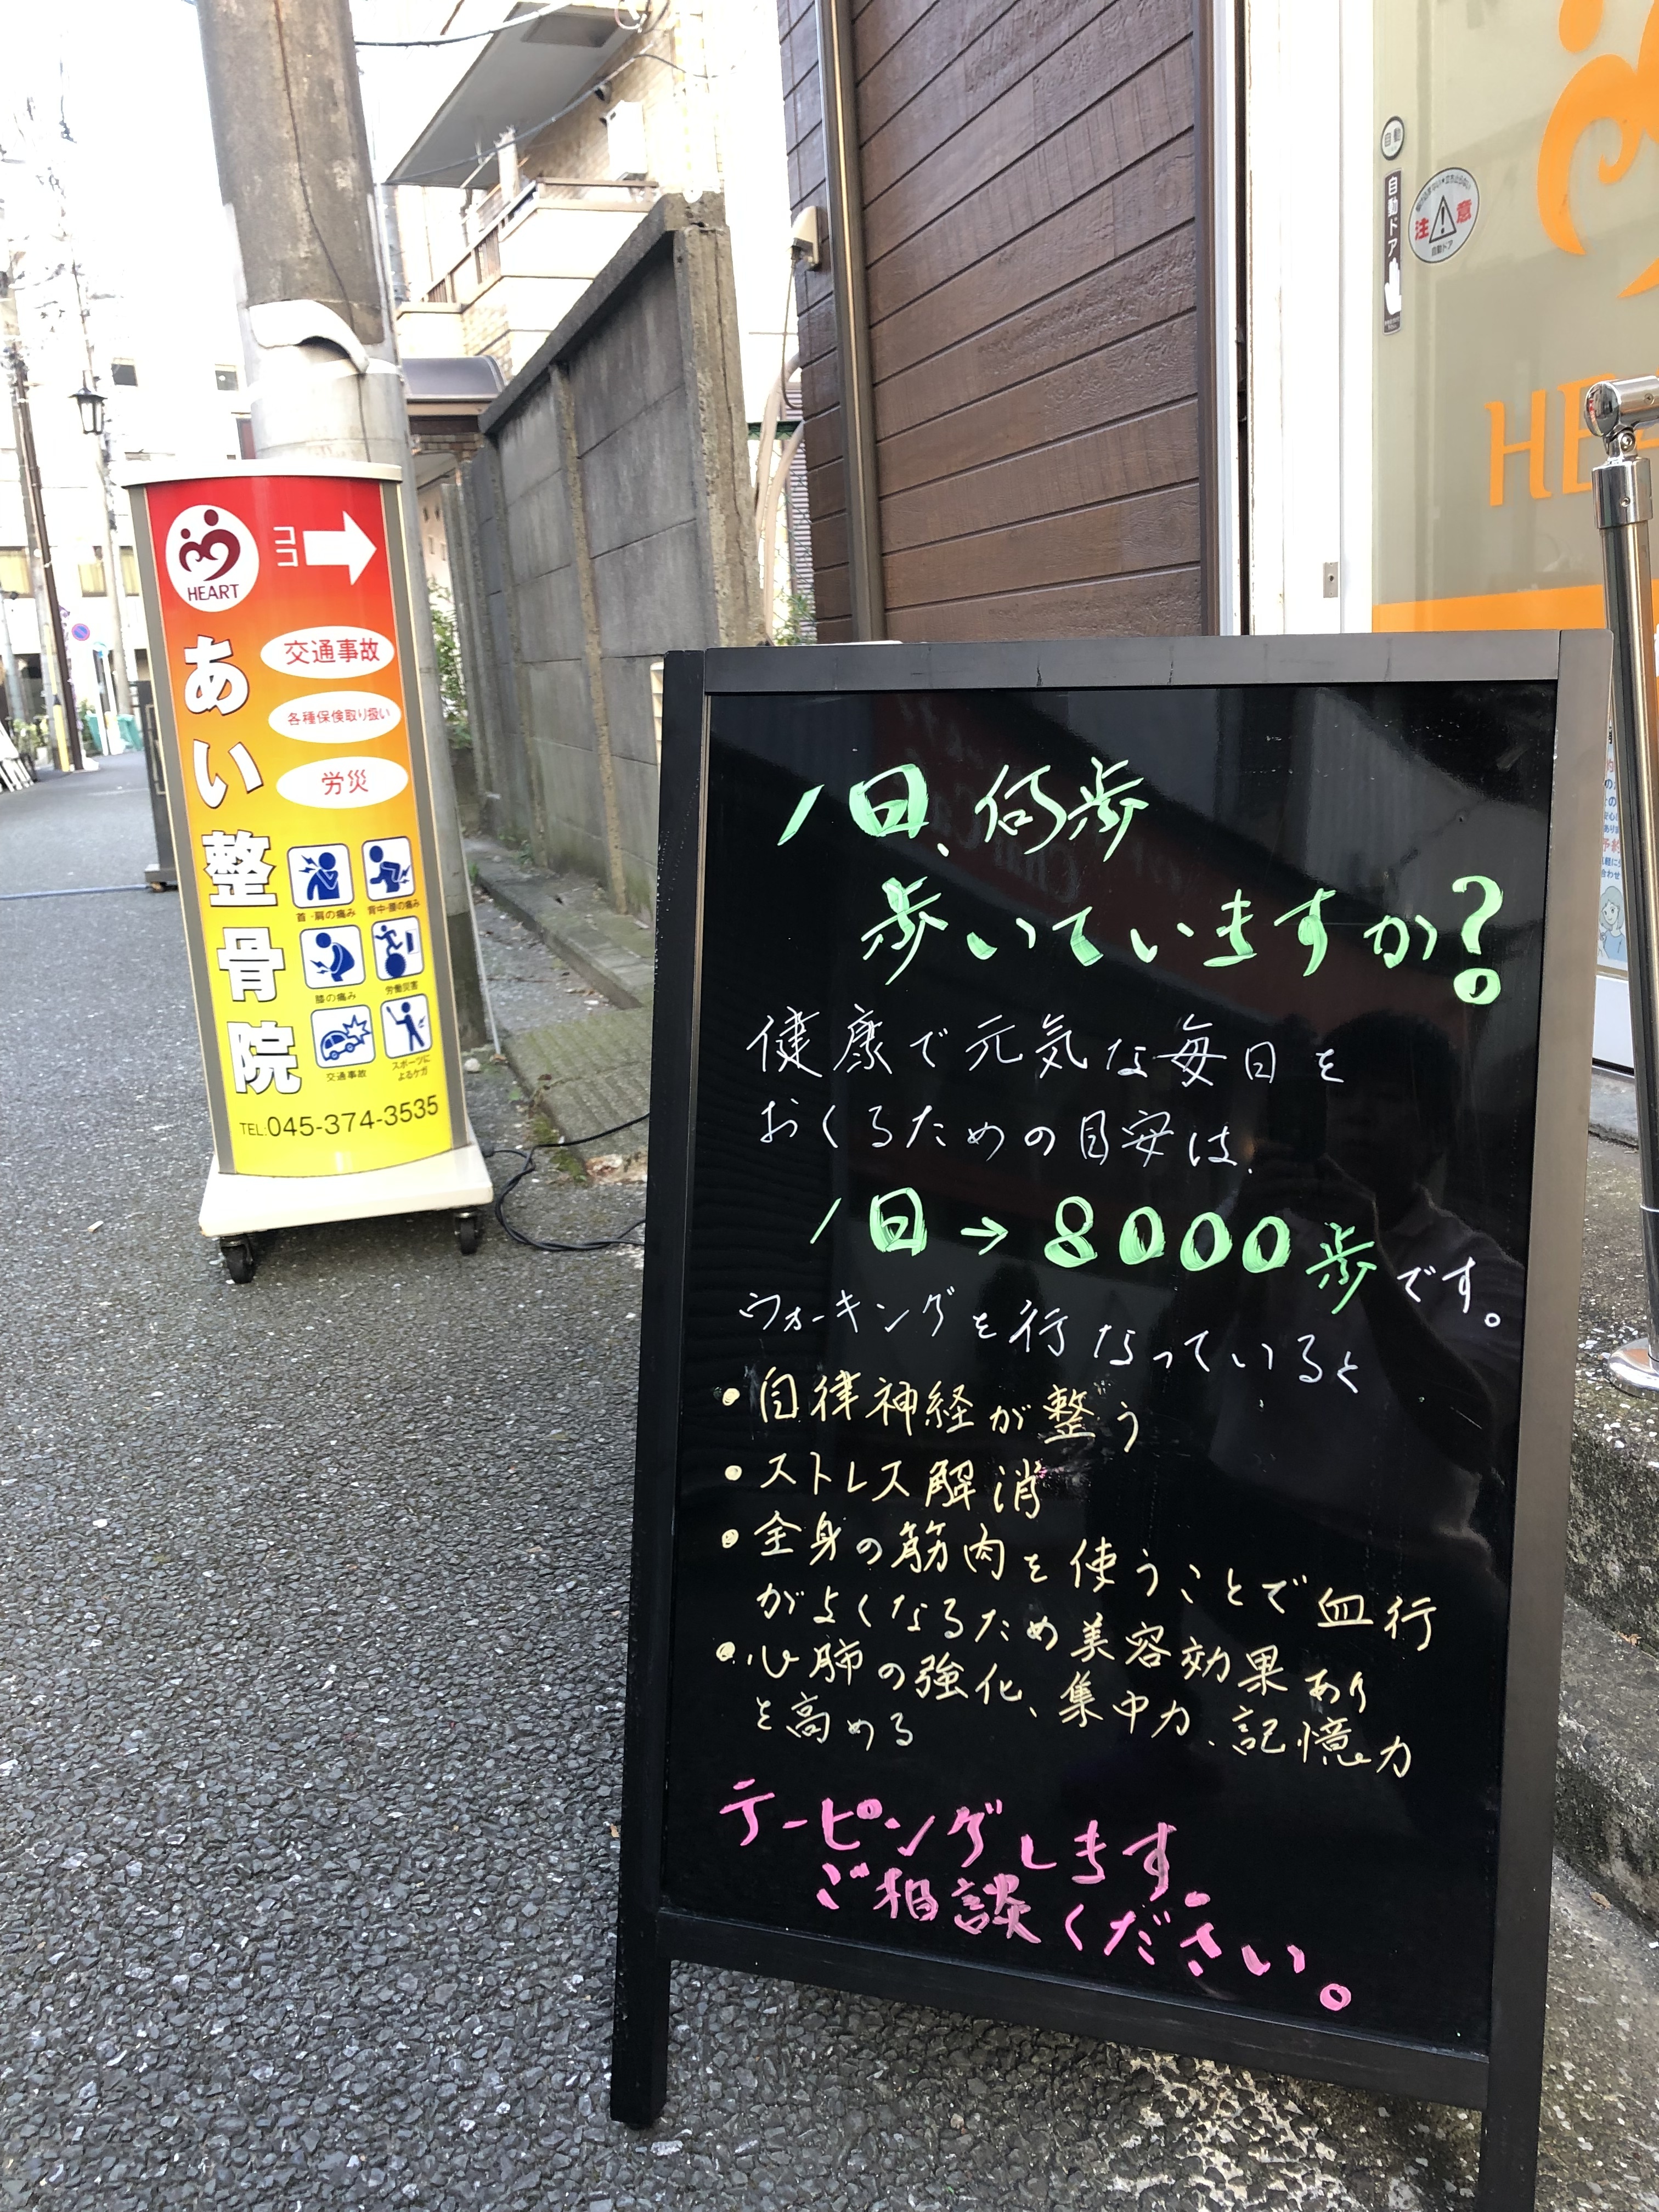 HEART
ココ
あい整骨院
交通事故
各種保険取り扱い
労災
首・肩の痛み
背中・腰の痛み
膝の痛み
労働災害
交通事故
スポーツに
よるケガ
TEL:045-374-3535
自動
自動ドア
注意
自動ドア
1日、何歩
歩いていますか?
健康で元気な毎日を
おくるための目安は、
1日→8000歩です。
ウォーキングを行なっていると
・自律神経が整う
・ストレス解消
・全身の筋肉を使うことで血行
がよくなるため美容効果あり
・心肺の強化、集中力、記憶力
を高める
テーピングします。
ご相談ください。